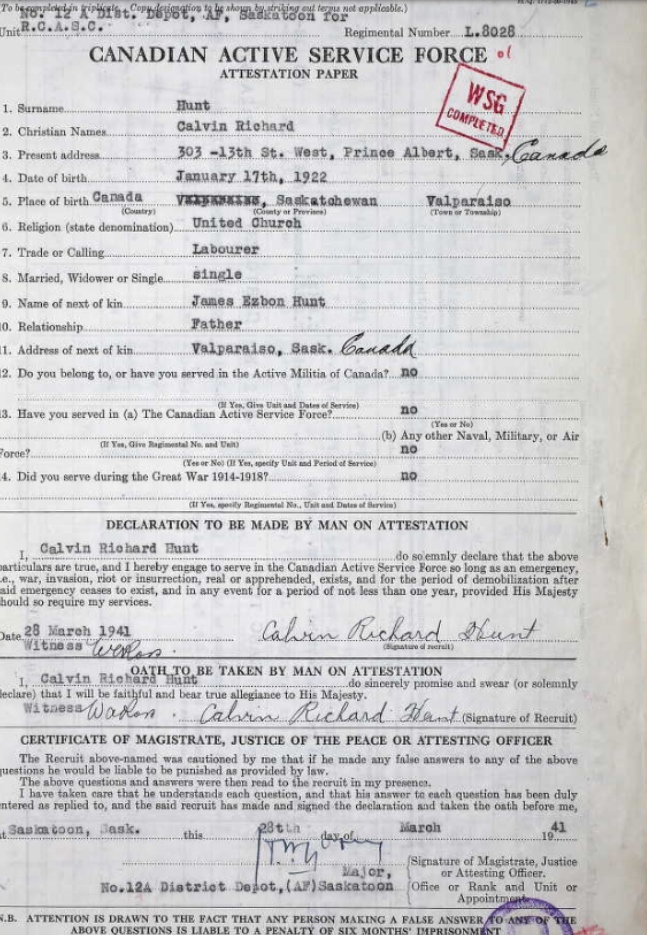 To be completed in triplicate. Copy designation to be shown by striking out terms not applicable.)
No. 12 A Dist. Depot, AF, Saskatoon for
Unit R.C.A.S.C. Regimental Number L.8028
CANADIAN ACTIVE SERVICE FORCE
ATTESTATION PAPER
WSG
COMPLETED
1. Surname Hunt
2. Christian Names Calvin Richard
3. Present address 303 -13th St. West, Prince Albert, Sask, Canada
4. Date of birth January 17th, 1922
5. Place of birth Canada Saskatchewan Valparaiso
(Country) (County or Province) (Town or Township)
6. Religion (state denomination) United Church
7. Trade or Calling Labourer
8. Married, Widower or Single single
9. Name of next of kin James Ezbon Hunt
10. Relationship Father
11. Address of next of kin Valparaiso, Sask. Canada
12. Do you belong to, or have you served in the Active Militia of Canada? no
(If Yes, Give Unit and Dates of Service)
13. Have you served in (a) The Canadian Active Service Force? no
(Yes or No)
(If Yes, Give Regimental No. and Unit) (b) Any other Naval, Military, or Air
Force? no
(Yes or No) (If Yes, specify Unit and Period of Service)
4. Did you serve during the Great War 1914-1918? no
(If Yes, specify Regimental No., Unit and Dates of Service)
DECLARATION TO BE MADE BY MAN ON ATTESTATION
I, Calvin Richard Hunt do solemnly declare that the above
particulars are true, and I hereby engage to serve in the Canadian Active Service Force so long as an emergency,
i.e., war, invasion, riot or insurrection, real or apprehended, exists, and for the period of demobilization after
said emergency ceases to exist, and in any event for a period of not less than one year, provided His Majesty
should so require my services.
Date 28 March 1941 Calvin Richard Hunt
Witness (Signature of recruit)
OATH TO BE TAKEN BY MAN ON ATTESTATION
I, Calvin Richard Hunt do sincerely promise and swear (or solemnly
declare) that I will be faithful and bear true allegiance to His Majesty.
Witness Calvin Richard Hunt (Signature of Recruit)
CERTIFICATE OF MAGISTRATE, JUSTICE OF THE PEACE OR ATTESTING OFFICER
The Recruit above-named was cautioned by me that if he made any false answers to any of the above
questions he would be liable to be punished as provided by law.
The above questions and answers were then read to the recruit in my presence.
I have taken care that he understands each question, and that his answer to each question has been duly
entered as replied to, and the said recruit has made and signed the declaration and taken the oath before me,
at Saskatoon, Sask. this 28tth day of March 1941
Major, (Signature of Magistrate, Justice
or Attesting Officer.
No.12A District Depot,(AF)Saskatoon Office or Rank and Unit or
Appointment
N.B. ATTENTION IS DRAWN TO THE FACT THAT ANY PERSON MAKING A FALSE ANSWER TO ANY OF THE
ABOVE QUESTIONS IS LIABLE TO A PENALTY OF SIX MONTHS' IMPRISONMENT